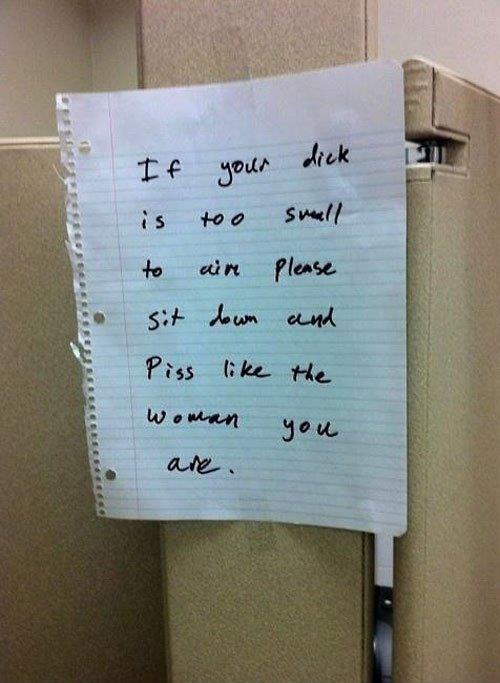 If your dick
is too small
to aim please
sit down and
Piss like the
woman you
are.